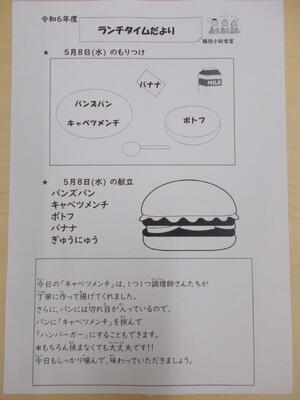 令和6年度
ランチタイムだより
★ 5月8日(水) のもりつけ
バナナ
MILK
バンズパン
キャベツメンチ
ポトフ
★ 5月8日(水) の献立
バンズパン
キャベツメンチ
ポトフ
バナナ
ぎゅうにゅう
今日の「キャベツメンチ」は、1つ1つ調理師さんたちが
丁寧に作って揚げてくれました。
さらに、パンには切れ目が入っているので、
パンに「キャベツメンチ」を挟んで
「ハンバーガー」にすることもできます。
*もちろん挟まなくても大丈夫です!!
今日もしっかり噛んで、味わっていただきましょう。